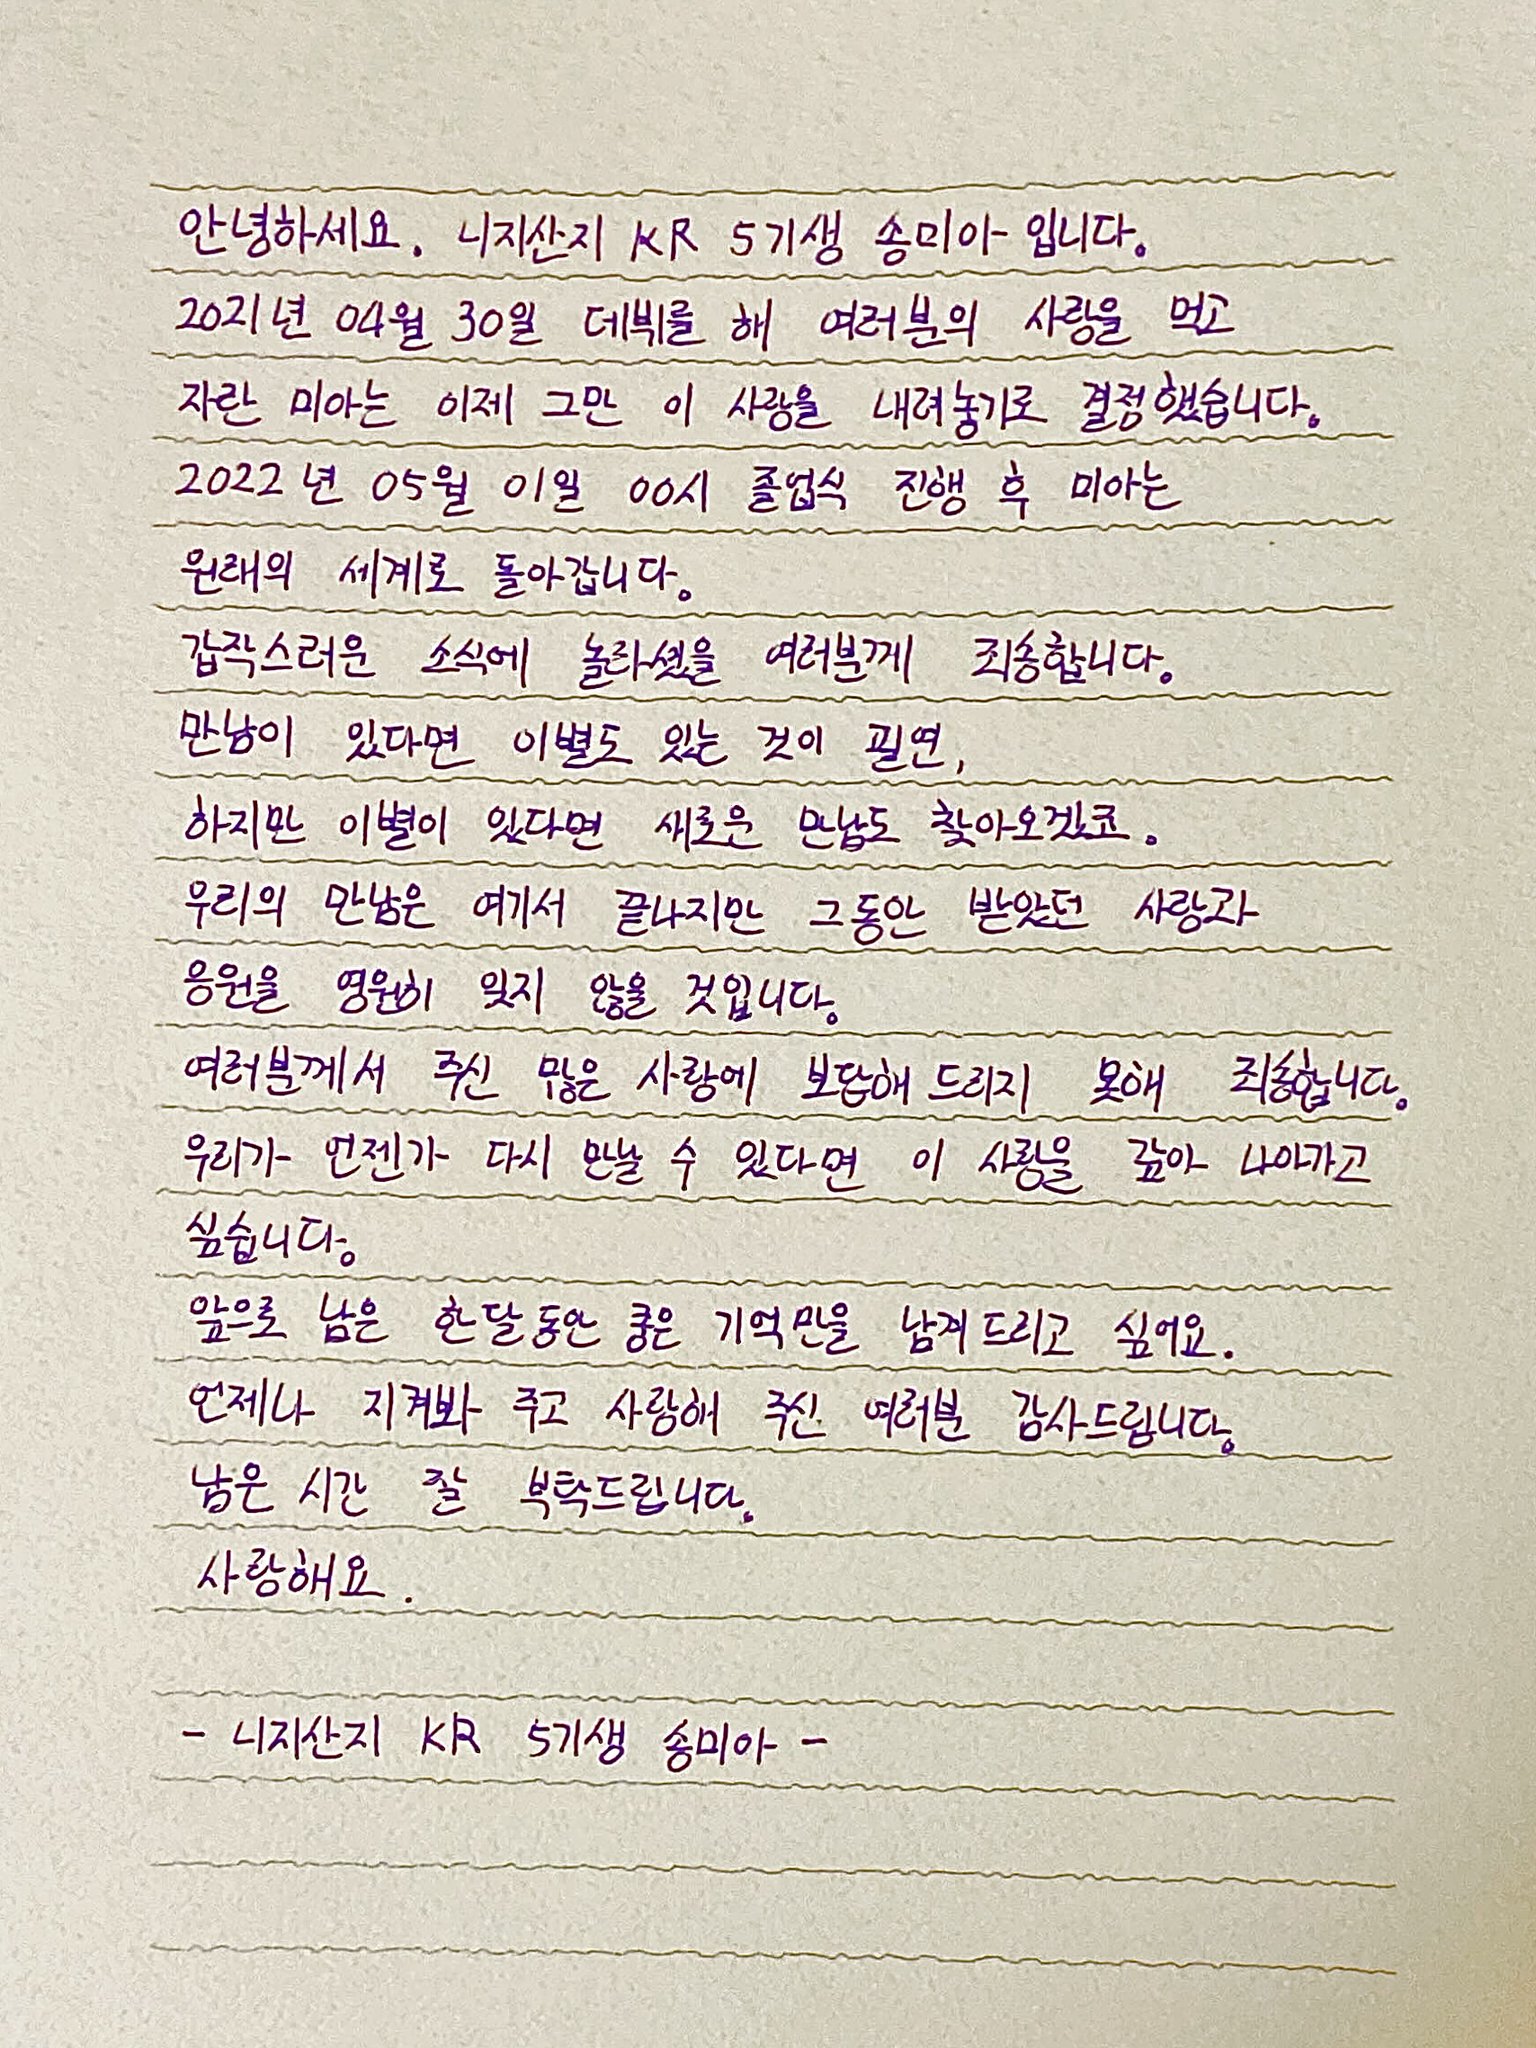 안녕하세요. 니지산지 KR 5기생 송미아 입니다.
2021년 04월 30일 데뷔를 해 여러분의 사랑을 먹고
자란 미아는 이제 그만 이 사랑을 내려놓기로 결정했습니다.
2022년 05월 01일 00시 졸업식 진행 후 미아는
원래의 세계로 돌아갑니다.
갑작스러운 소식에 놀라셨을 여러분께 죄송합니다.
만남이 있다면 이별도 있는 것이 필연,
하지만 이별이 있다면 새로운 만남도 찾아오겠죠.
우리의 만남은 여기서 끝나지만 그동안 받았던 사랑과
응원을 영원히 잊지 않을 것입니다.
여러분께서 주신 많은 사랑에 보답해 드리지 못해 죄송합니다.
우리가 언젠가 다시 만날 수 있다면 이 사랑을 갚아 나아가고
싶습니다.
앞으로 남은 한 달 동안 좋은 기억만을 남겨 드리고 싶어요.
언제나 지켜봐 주고 사랑해 주신 여러분 감사드립니다.
남은 시간 잘 부탁드립니다.
사랑해요.
- 니지산지 KR 5기생 송미아 -